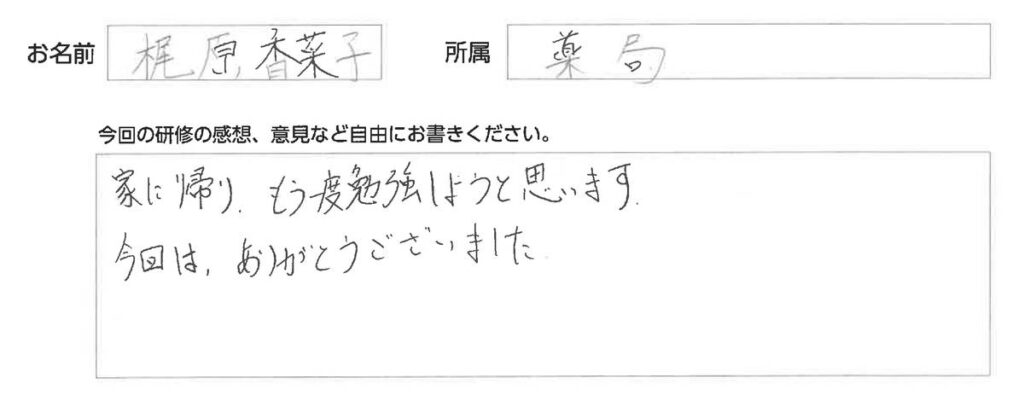 お名前 梶原香菜子 所属 薬局
今回の研修の感想、意見など自由にお書きください。
家に帰り、もう度勉強しようと思います。
今回は、ありがとうございました